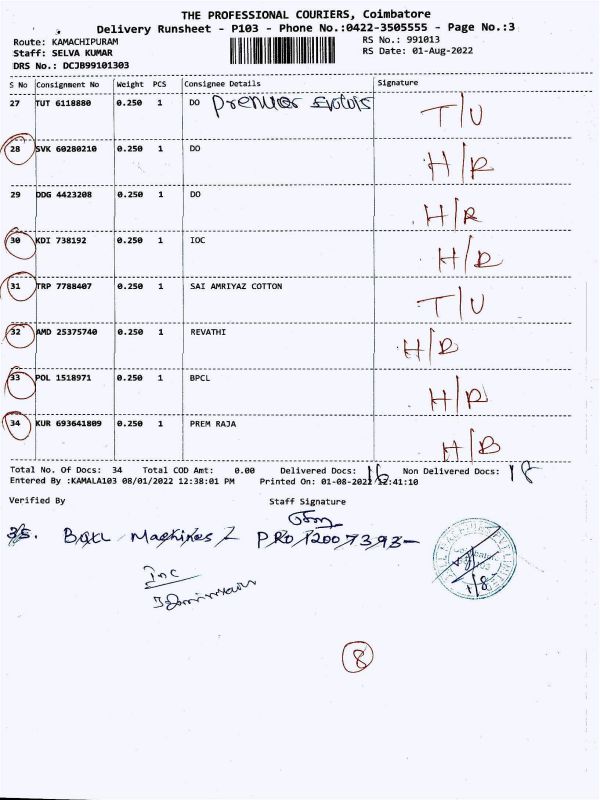 THE PROFESSIONAL COURIERS, Coimbatore
Delivery Runsheet - P103 - Phone No.:0422-3505555 - Page No.:3
Route: KAMACHIPURAM RS No.: 991013
Staff: SELVA KUMAR RS Date: 01-Aug-2022
DRS No.: DCJB99101303
S No Consignment No Weight PCS Consignee Details Signature
27 TUT 6118880 0.250 1 DO T/U
28 SVK 60280210 0.250 1 DO H/R
29 DDG 4423208 0.250 1 DO H/R
30 KDI 738192 0.250 1 IOC H/R
31 TRP 7788407 0.250 1 SAI AMRIYAZ COTTON T/U
32 AMD 25375740 0.250 1 REVATHI H/R
33 POL 1518971 0.250 1 BPCL H/R
34 KUR 693641809 0.250 1 PREM RAJA H/R
Total No. Of Docs: 34 Total COD Amt: 0.00 Delivered Docs: 16 Non Delivered Docs: 18
Entered By :KAMALA103 08/01/2022 12:38:01 PM Printed On: 01-08-2022 12:41:10
Verified By Staff Signature
35. Machines PRO 12007393-
8